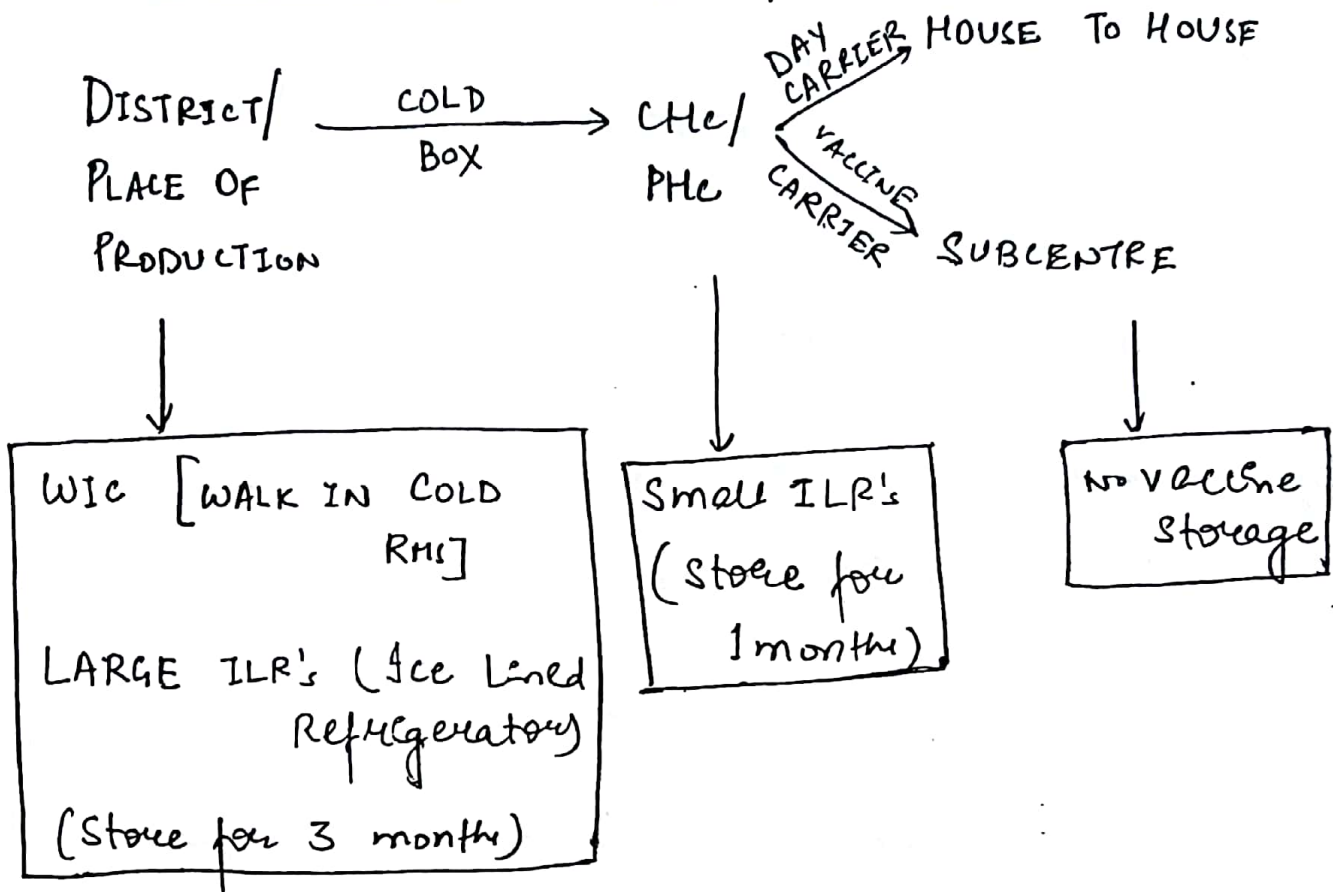 DISTRICT/
PLACE OF
PRODUCTION
COLD
BOX
CHC/
PHC
DAY
CARRIER
HOUSE TO HOUSE
VACCINE
CARRIER
SUBCENTRE
WIC [WALK IN COLD
RMS]
LARGE ILR's (Ice Lined
Refrigerators
(Store for 3 months)
Small ILR's
(Store for
1 months)
No vaccine
storage